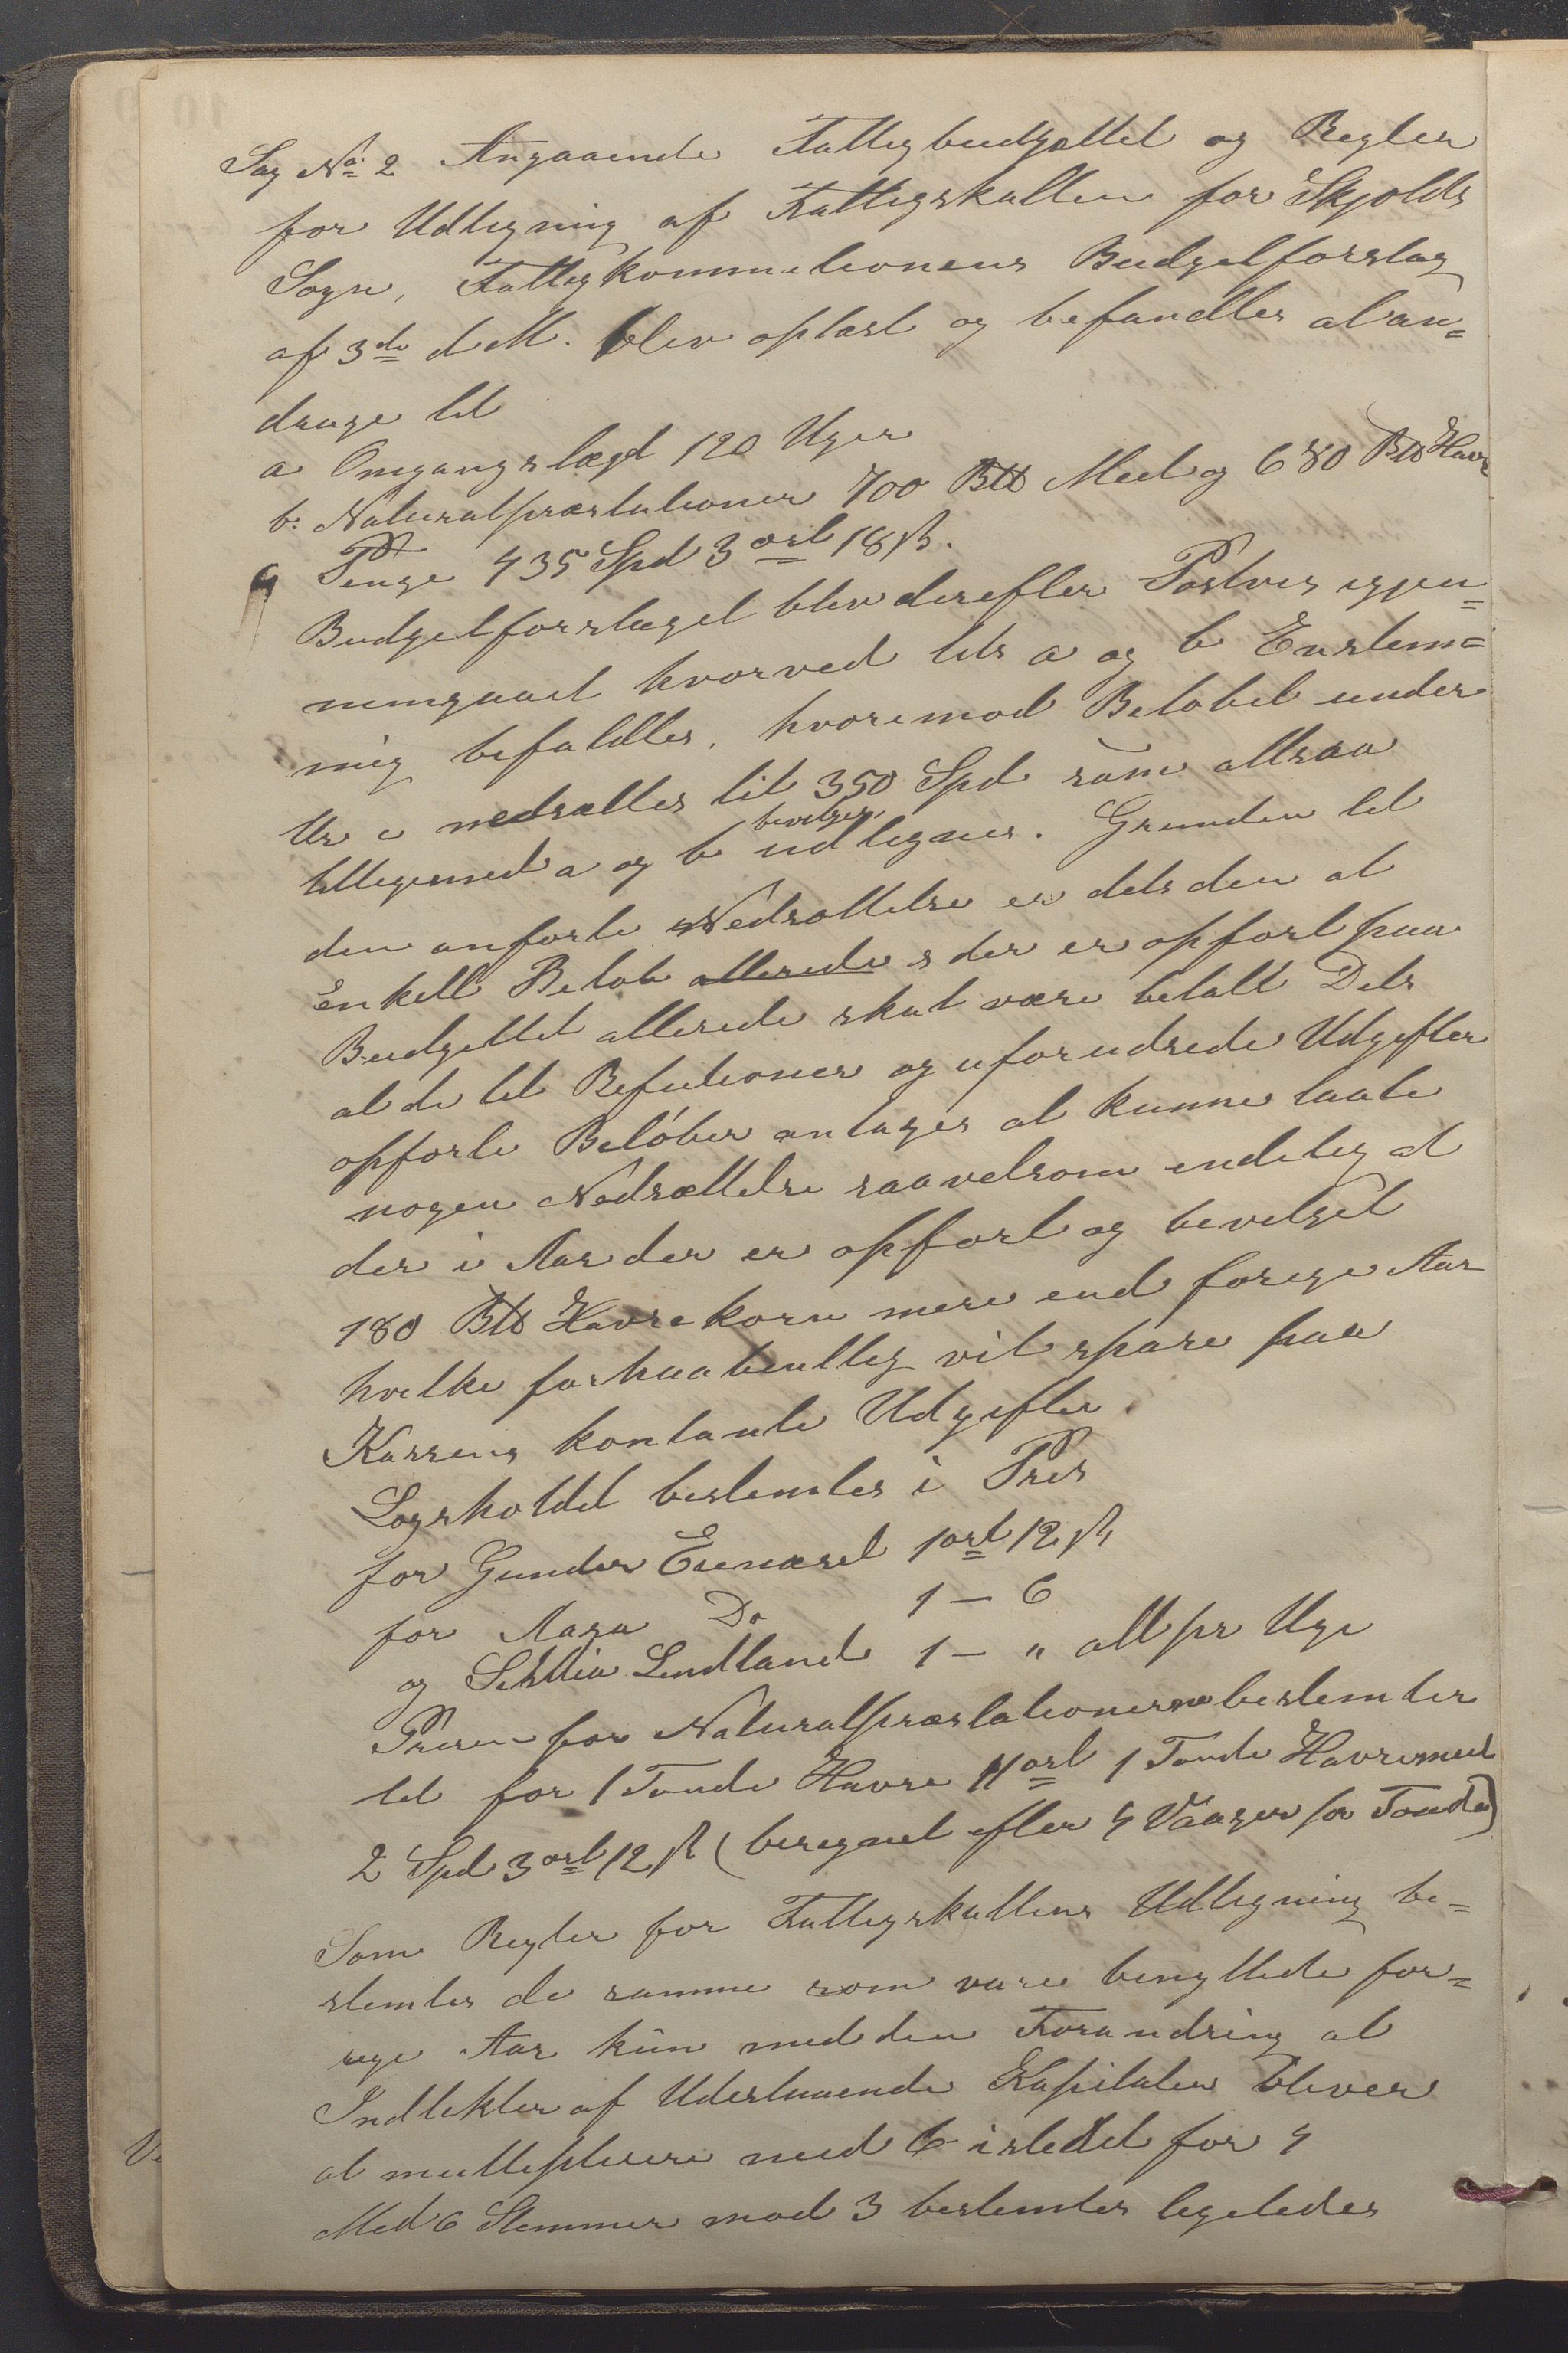 Sag No 2 Angaaende Fattigbudgettet og Regler
for Udligning af Fattigskatten for Skjolds
Sogn, Fattigkommetionens Budgetforslag
af 3de d M. blev oplæst og befandtes at an=
drage til
a Omgangslægd 120 Uger
b. Naturalpræstationer 700 B℔ Meel og 680 B℔ Havr
c Penge 435 Spd 3 ort 18 ß.
Budgetforslaget blev derefter Postvis igjen=
nemgaaet hvorved Litr a og b Enstem=
mig befaldtes, hvoremod Beløbet under
Litr c nedsættes til 350 Spd som altsaa
tilligemed a og b bevilges udlignes. Grunden til
den anførte Nedsættelse er dels den at
Enkelt Beløb allerede s der er opført paa
Budgettet allerede skal være betalt Dels
at de til Refutioner og uforudsede Udgifter
opførte Beløber antages at kunne taale
nogen Nedsættelse saavelsom endelig at
der i Aar der er opført og bevelget
180 B℔ Havrekorn mere end forrige Aar
hvilke forhaabentlig vil spare paa
Kassens kontante Udgifter.
Logsholdet bestemtes i Pris
for Gunder Eienæset 1 ort 12 ß
for Aasa Do 1 — 6
og Lindland 1 — " alt pr Uge
Prisen for Naturalpræstationerne bestemtes
til for 1 Tønde Havre 11 ort 1 Tønde Havremeel
2 Spd 3 ort 12 ß (beregnet efter 4 Vaager pr Tønde)
Som Regler for Fattigskattens Udligning be=
stemtes de samme som vare benyttede for=
rige Aar kun med den Forandring at
Indtekter af Udestaaende Kapitaler bliver
at multiplicere med 6 istedet for 4
Med 6 Stemmer mod 3 bestemtes ligeledes